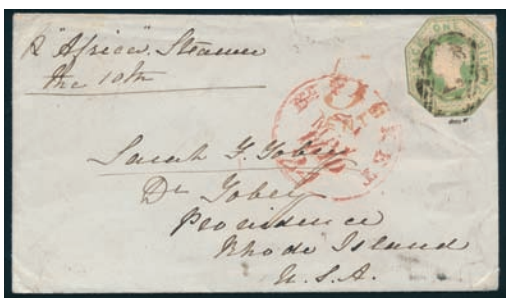 "Africa". Steamer
the 10th
ONE
Sarah F. Tobey
Dr Tobey
Providence
Rhode Island
U.S.A.